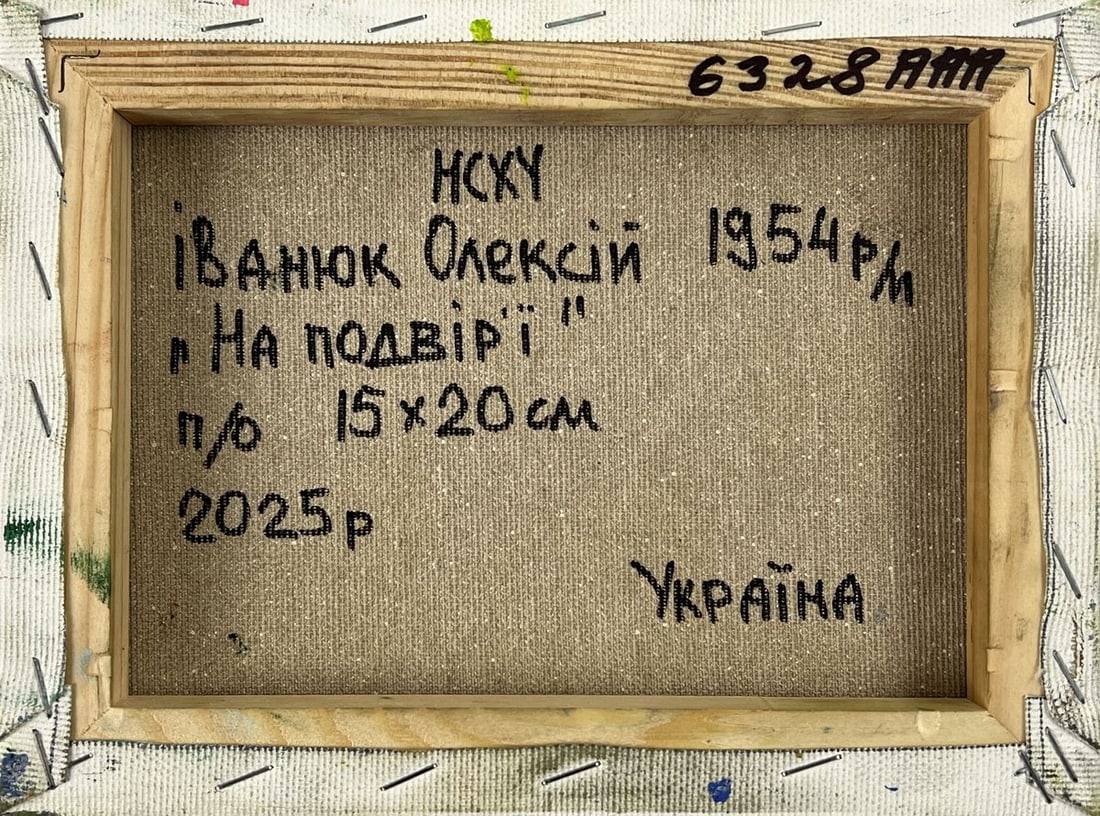 6328ААА
НСХУ
іВАНЮК Олексій 1954 р/м
„На подвір'ї"
п/о 15х20см
2025р
УКРАЇНА